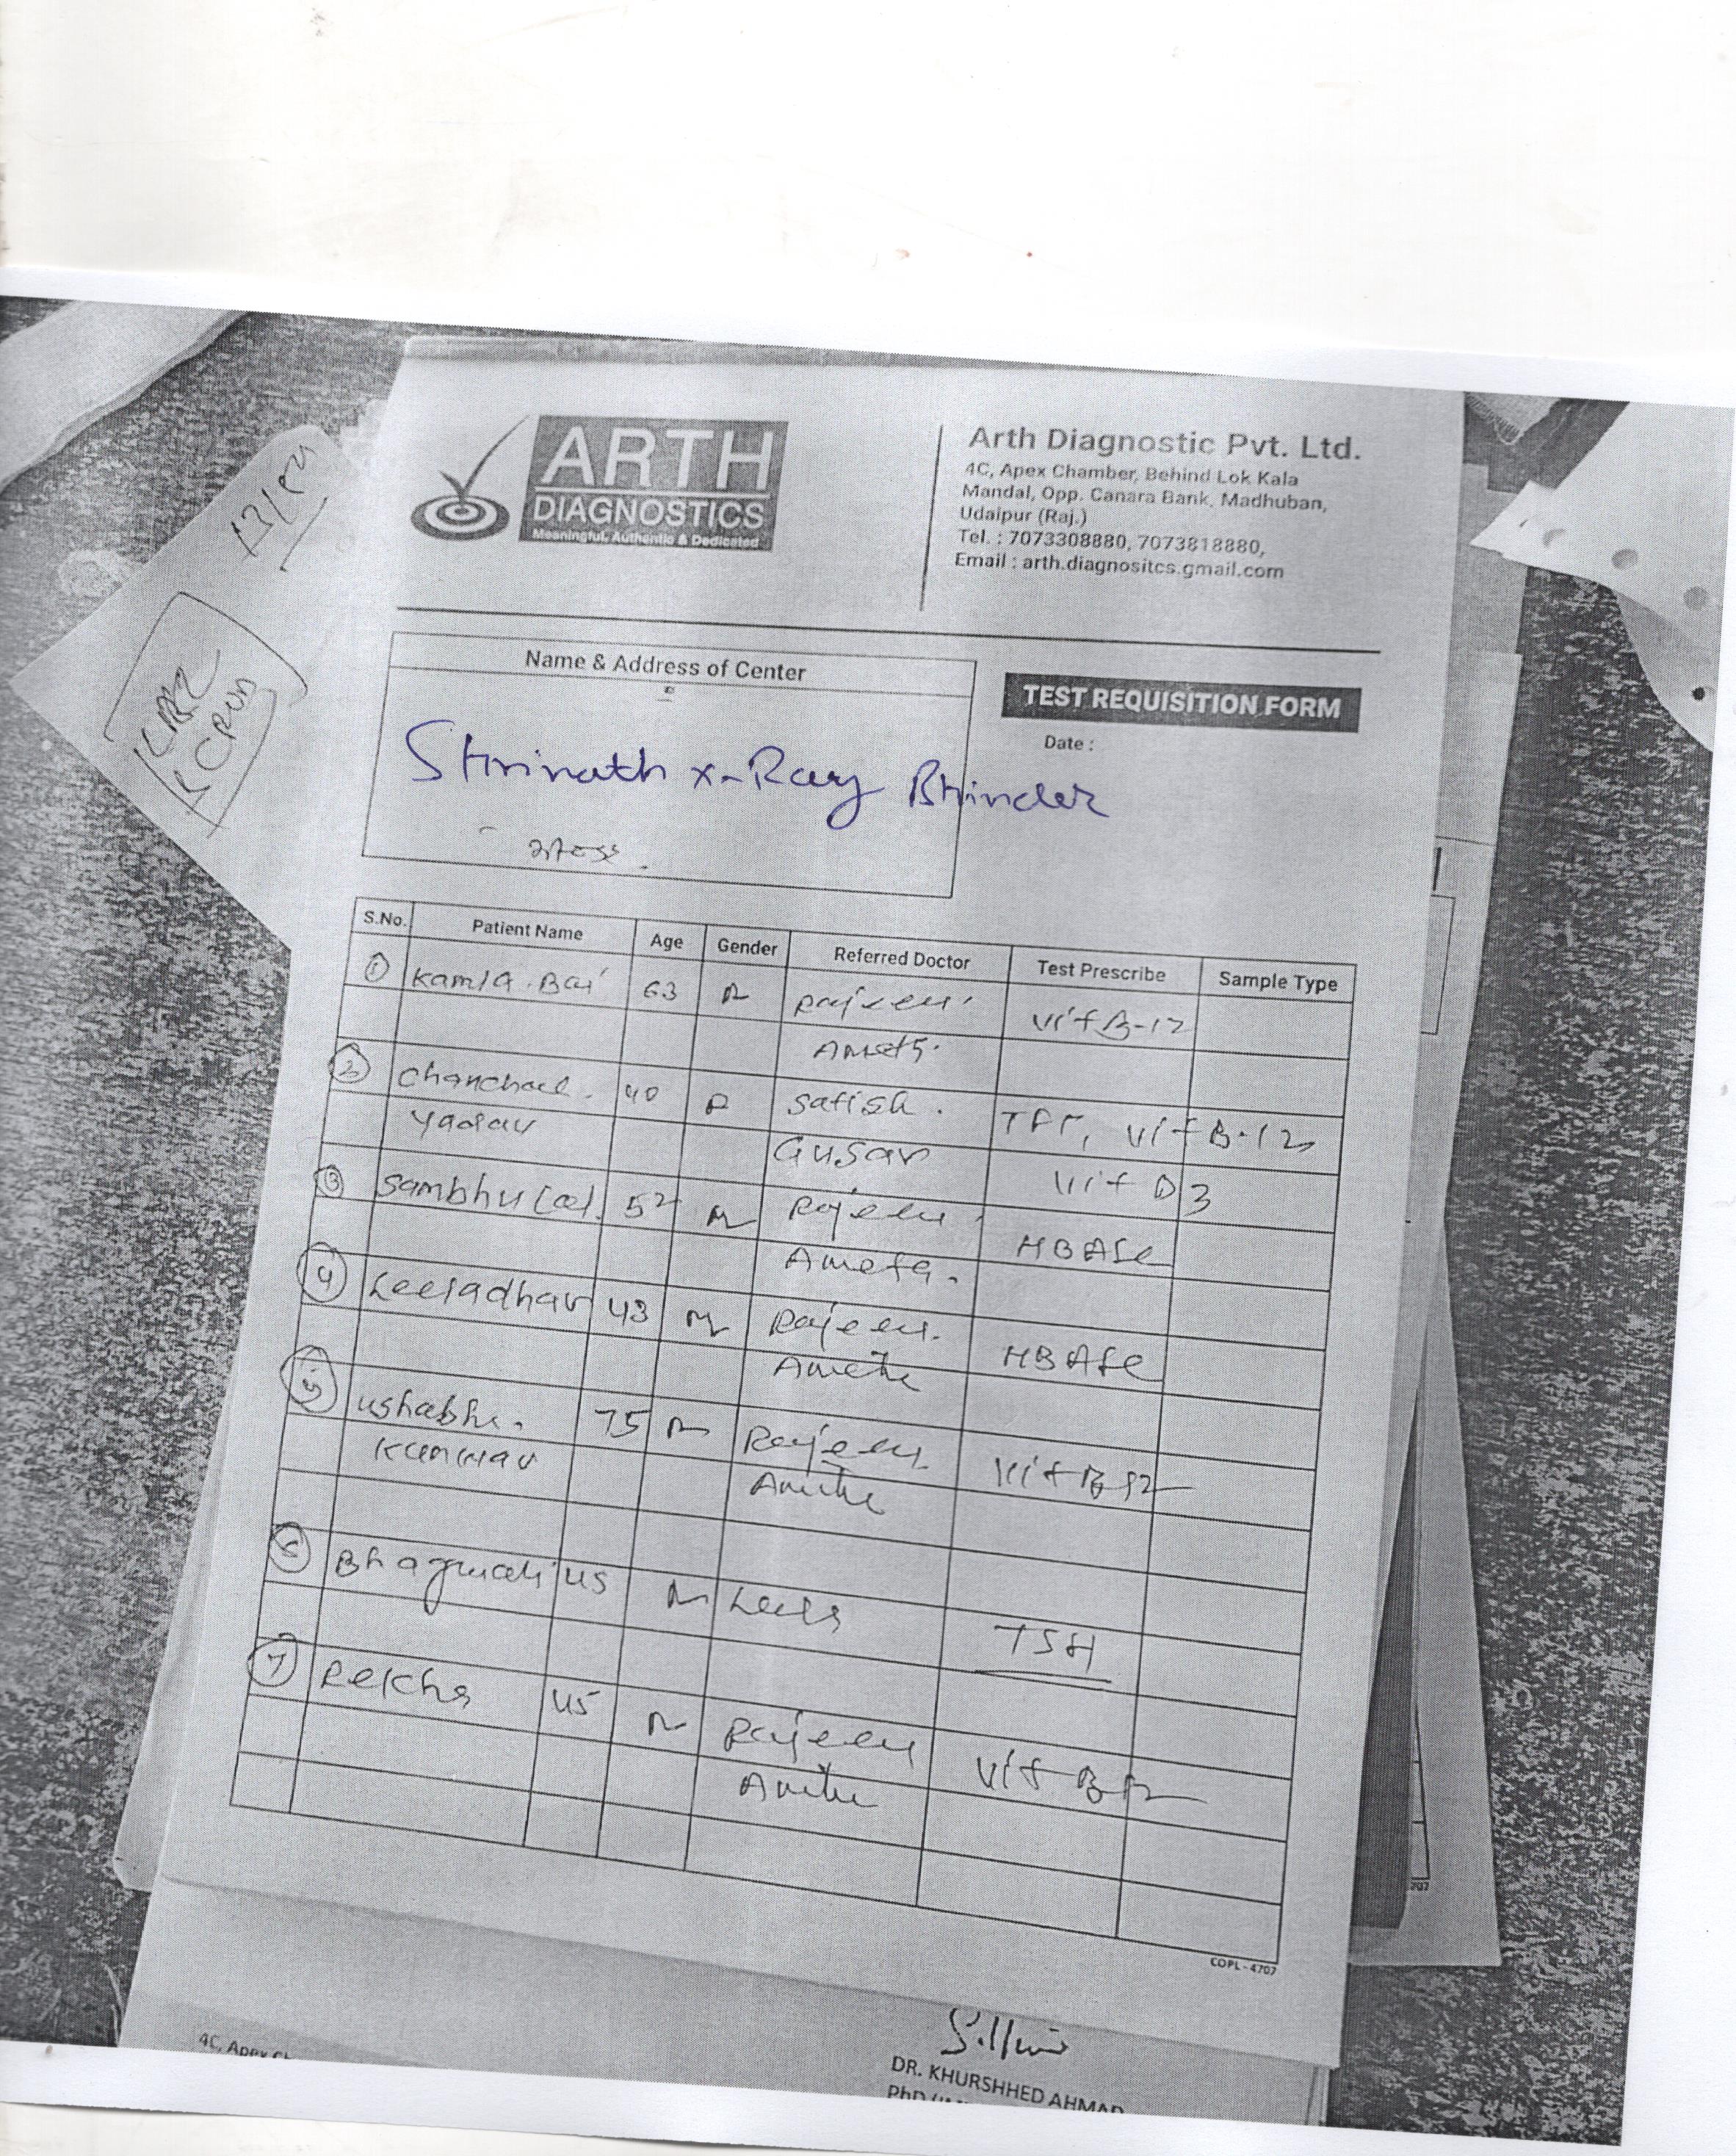 ARTH
DIAGNOSTICS
Meaningful, Authentic & Dedicated
Arth Diagnostic Pvt. Ltd.
4C, Apex Chamber, Behind Lok Kala
Mandal, Opp. Canara Bank, Madhuban,
Udaipur (Raj.)
Tel. : 7073308880, 7073818880,
Email : arth.diagnositcs.gmail.com
Name & Address of Center
TEST REQUISITION FORM
Date :
Shrinath x-Ray Bhinder
S.No. Patient Name Age Gender Referred Doctor Test Prescribe Sample Type
1 Kamla Bai 63 Rajeev Vit B-12
Ameta
2 Chanchal 40 Satish TFT, Vit B-12
Yadav Vit D3
3 Sambhu Lal 52 M Rajeev
Ameta
4 Leeladhar 43 M Rajeev
Ameta
5 75 Rajeev Vit B12
Kunwar Ameta
6 Bhagwati 45 TSH
7 Rekha 45 Rajeev Vit B12
Ameta
COPL - 4707
4C, Apex
DR. KHURSHHED AHMAD